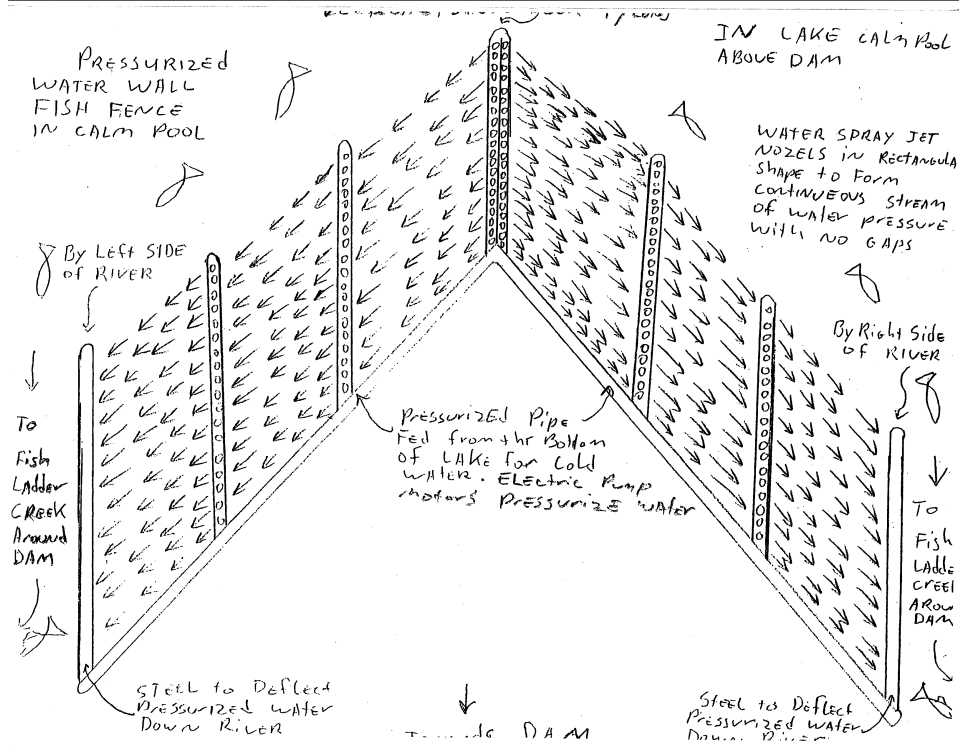 IN LAKE CALM POOL
ABOVE DAM
PRESSURIZED
WATER WALL
FISH FENCE
IN CALM POOL
WATER SPRAY JET
NOZELS IN RECTANGULA
SHAPE TO FORM
CONTINUEOUS STREAM
OF WATER PRESSURE
WITH NO GAPS
By LEFT SIDE
OF RIVER
By Right Side
OF RIVER
To
Fish
LADDER
CREEK
Around
DAM
PRESSURIZED PIPE
FED from the Bottom
OF LAKE FOR Cold
WATER. ELECTRIC PUMP
motors PRESSURIZE WATER
To
Fish
LADDE
CREEI
AROU
DAM
STEEL to DEFLECT
PRESSURIZED WATER
DOWN RIVER
Towards DAM
STEEL to DEFLECT
PRESSURIZED WATER
DOWN RIVER